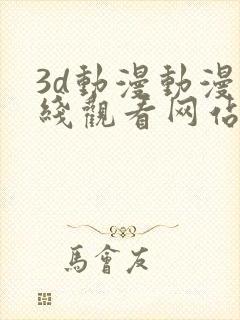 3d動漫動漫
綫觀看网佔
馬會友